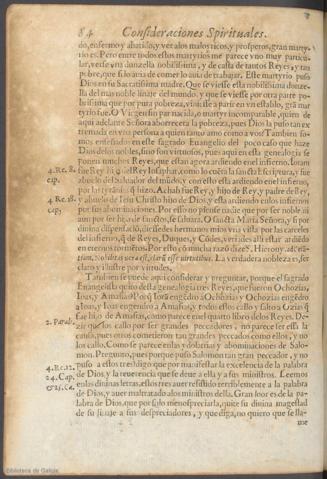 84 Consideraciones Spirituales.
do, enfermo y abatido, y ver a los malos ricos, y prosperos, gran marty-
rio es. Pero entre todos estos martyrios me parece vno muy particu-
lar, verse vna donzella nobilissima, y de casta de tantos Reyes, y tan
pobre, que si lo auia de comer lo auia de trabajar. Este martyrio puso
Dios en su sacratissima madre. Que se viesse esta nobilissima donze-
lla del mas noble linage del mundo, y que se viesse por otra parte po-
brissima que por pura pobreza, viniesse a parir en vn establo, grã mar
tyrio fue. O Virgen sin par nacida, o martyr incomparable, quien de
aqui adelante Señora aborrecera la pobreza, pues Dios la puso tan ex
tremada en vna persona a quien tanto amo como a vos? Tambien so-
mos enseñados en este sagrado Euangelio del poco caso que haze
Dios delos nobles, sino son virtuosos, pues aqui en esta genealogia se
ponen muchos Reyes, que estan agora ardiendo en el infierno. Ioram
4. Re. 8. fue Rey hijo del Rey Iosaphat, como lo cuẽta la sancta Escriptura, y fue
cap. abuelo del Saluador del mũdo, y con esto esta ardiendo en el infierno,
por las tyranias q̃ hizo. Achab fue Rey, y hijo de Rey, y padre de Rey,
4. Re. 18. y abuelo de Iesu Christo hijo de Dios, y esta ardiendo en los infiernos
cap. por sus abominaciones. Por esso no piense nadie que por ser noble ni
aun por ser hijo de sanctos, se saluara. O sancta Maria Señora, y si por
diuina dispensacion, diessedes hermanos mios vna vista por las carceles
del infierno, q̃ de Reyes, Duques, y Cõdes, veriades alli estar ardiẽdo
en eternos tormẽtos? Por esto
tium, nobilitas vera est, clarũ esse virtutibus. La verdadera nobleza es, ser
claro y illustre por virtudes.
Tambien se puede aqui considerar y preguntar, porque el sagrado
Euangelista quito desta genealogia tres Reyes, que fueron Ochozias,
Ioas, y Amasias? Por q̃ Iorã engẽdro a Ochozias y Ochozias engẽdro
a Ioas, y Ioas engendro a Amasias, y todos estos callo y salto a Ozias q̃
2. Paral. fue hijo de Amasias, como parece en el quarto libro de los Reyes. De-
zir que los callo por ser grandes peccadores, no parece ser essa la
causa, pues otros cometieron tan grandes peccados como ellos, y no
los callo. Como se parece en las ydolatrias y abominaciones de Salo-
mon. Pregunto, pues porque puso Salomon tan gran peccador, y no
4. Re. 12. puso a estos tres? digo que por manifestar la excelencia de la palabra
24. Cap. de Dios, y la reuerencia que se deue a ella y a sus ministros. Leemos
& 25. Ca. en las diuinas letras, estos tres auer resistido terriblemente a la palabra
de Dios, y auer maltratado a los ministros della. Gran loor es de la pa-
labra de Dios, que por solo menospreciarla, quite su diuina magestad
de su linaje a sus despreciadores, y que diga, no quiero que se lla-
me
Biblioteca de Galicia